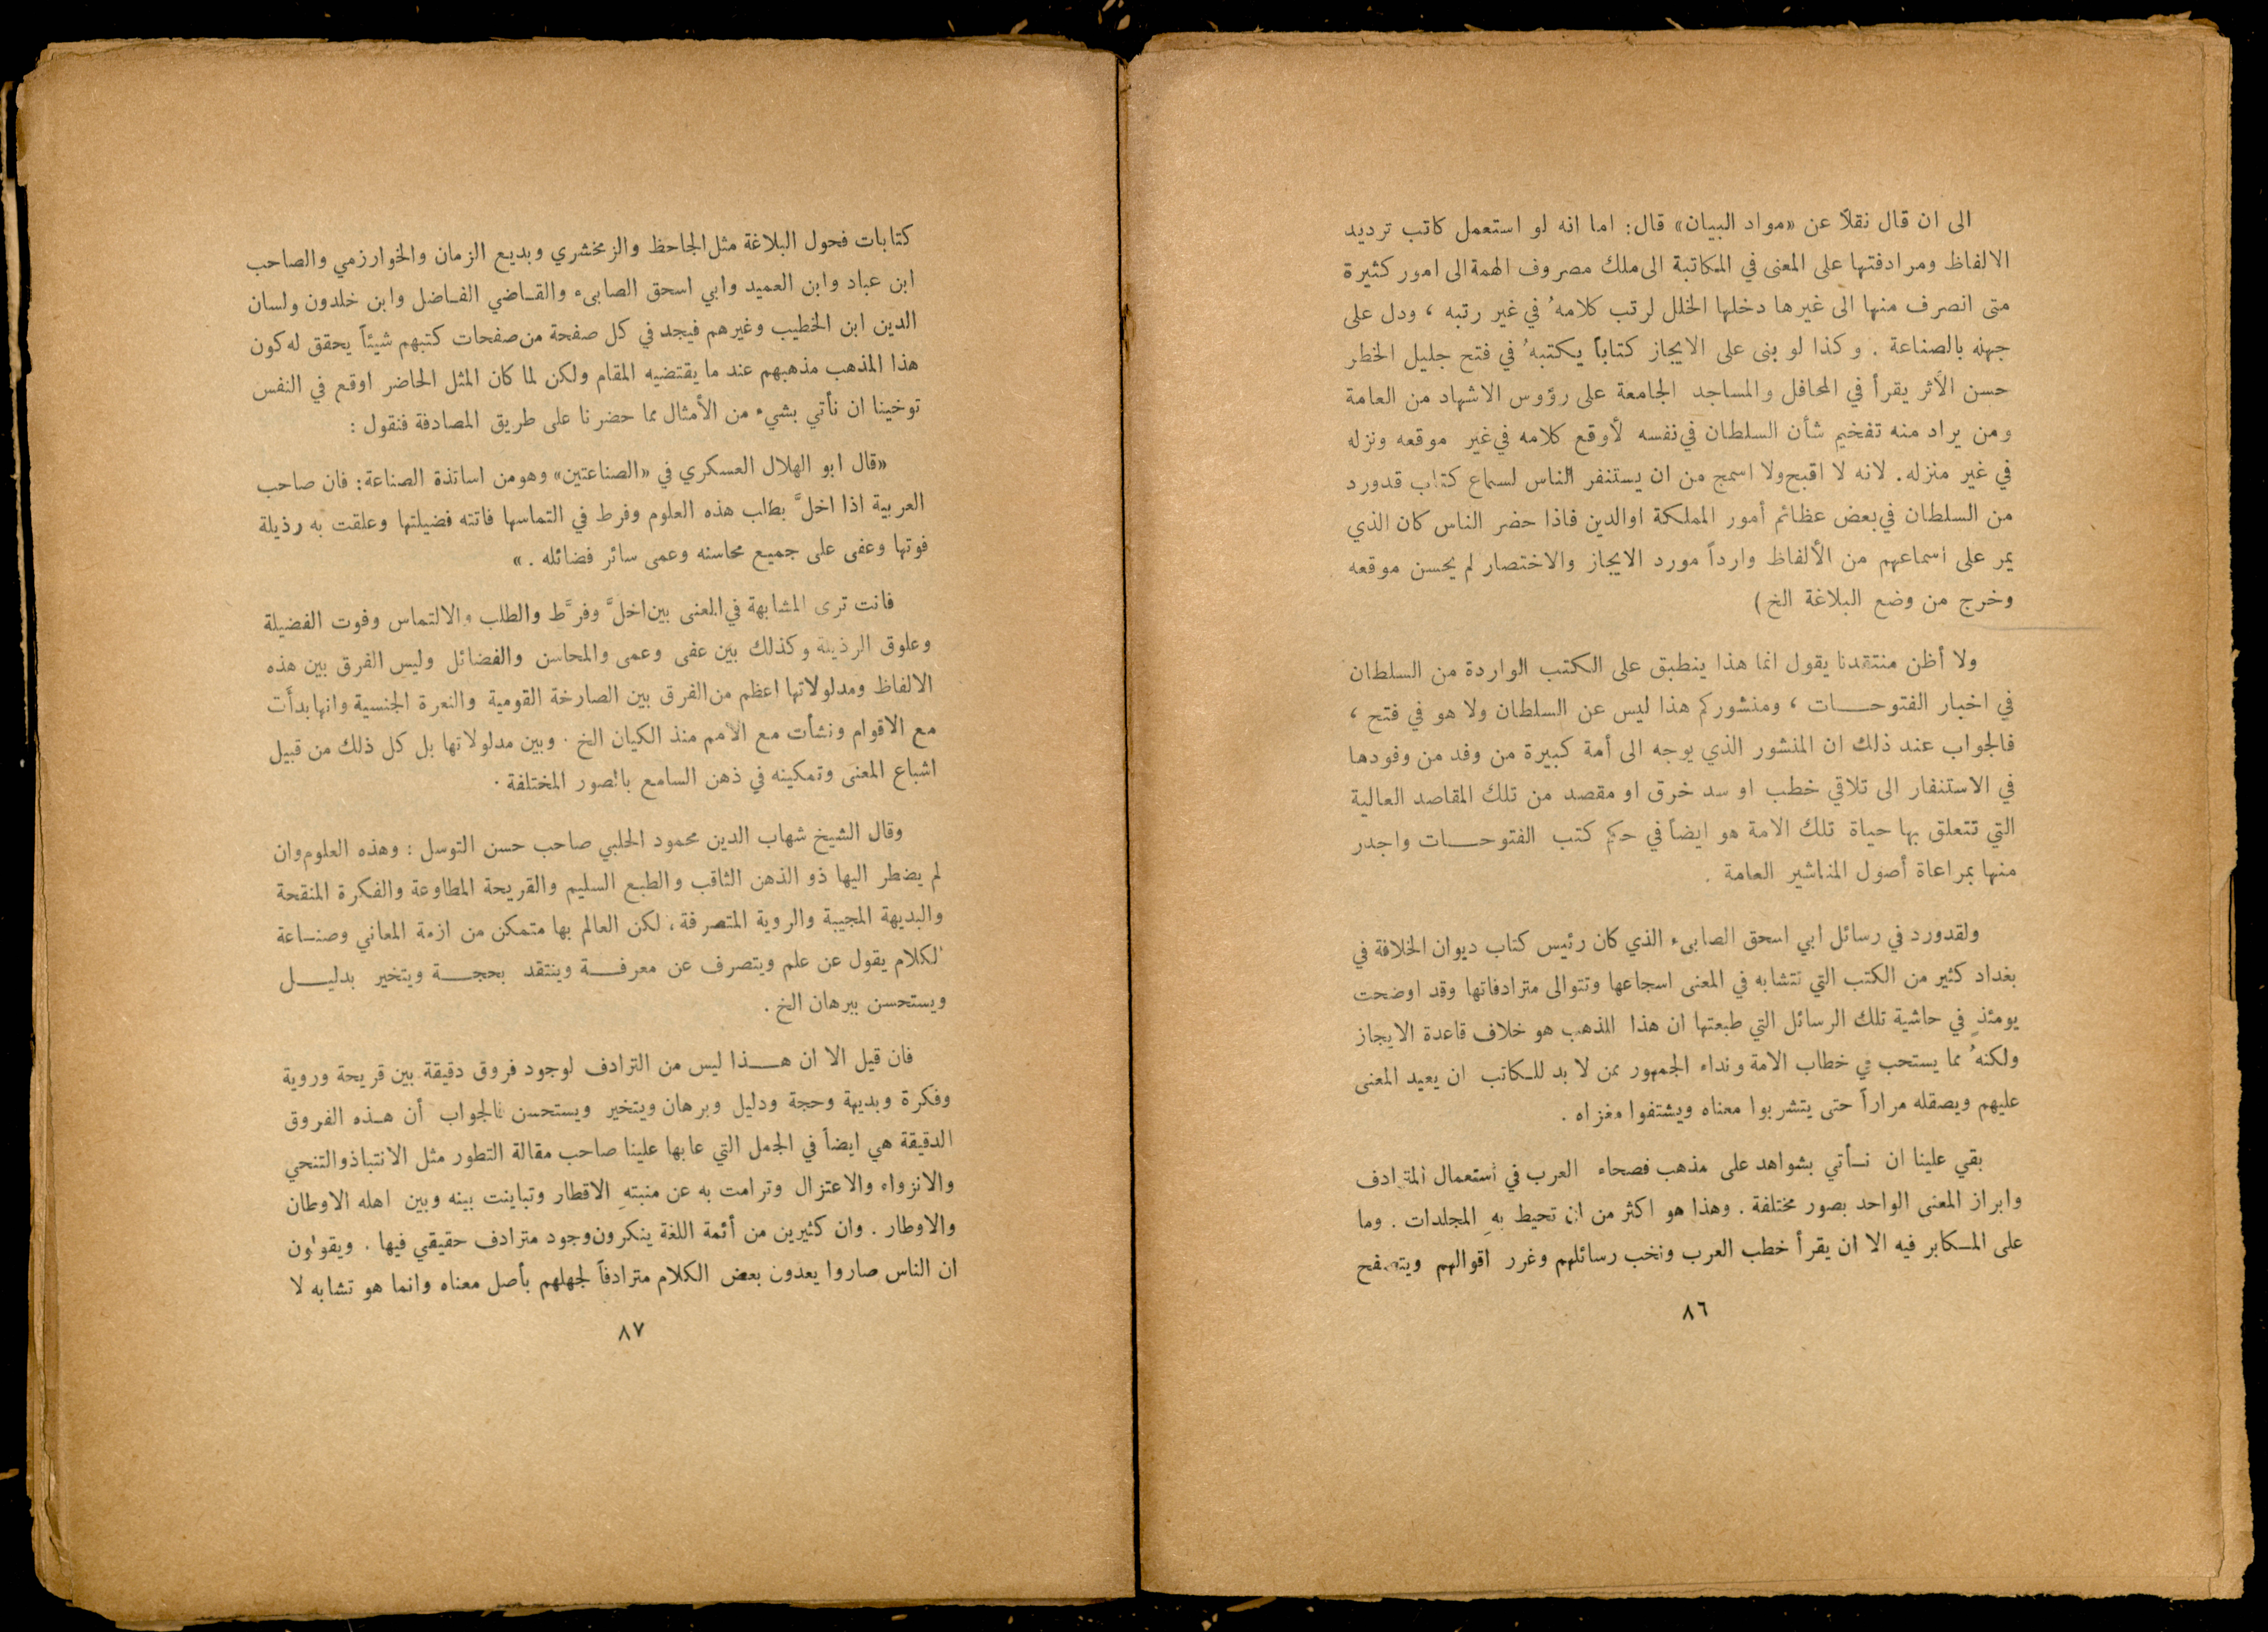 الى ان قال نقلاً عن «مواد البيان» قال: اما انه لو استعمل كاتب ترديد
الالفاظ ومرادفتها على المعنى في المكاتبة الى ملك مصروف الهمة الى امور كثيرة
متى انصرف منها الى غيرها دخلها الخلل لرتب كلامهُ في غير رتبه ، ودل على
جهله بالصناعة . وكذا لو بنى على الايجاز كتاباً يكتبهُ في فتح جليل الخطر
حسن الأثر يقرأ في المحافل والمساجد الجامعة على رؤوس الاشهاد من العامة
ومن يراد منه تفخيم شأن السلطان في نفسه لأوقع كلامه في غير موقعه ونزله
في غير منزله . لانه لا اقبح ولا اسمج من ان يستنفر الناس لسماع كتاب قدورد
من السلطان في بعض عظائم أمور المملكة اوالدين فاذا حضر الناس كان الذي
يمر على اسماعهم من الألفاظ وارداً مورد الايجاز والاختصار لم يحسن موقعه
وخرج من وضع البلاغة الخ)
ولا أظن منتقدنا يقول انما هذا ينطبق على الكتب الواردة من السلطان
في اخبار الفتوحـــات ، ومنشوركم هذا ليس عن السلطان ولا هو في فتح ،
فالجواب عند ذلك ان المنشور الذي يوجه الى أمة كبيرة من وفد من وفودها
في الاستنفار الى تلاقي خطب او سد خرق او مقصد من تلك المقاصد العالية
التي تتعلق بها حياة تلك الامة هو ايضاً في حكم كتب الفتوحـــات واجدر
منها بمراعاة أصول المناشير العامة .
ولقدورد في رسائل ابي اسحق الصابىء الذي كان رئيس كتاب ديوان الخلافة في
بغداد كثير من الكتب التي تتشابه في المعنى اسجاعها وتتوالى مترادفاتها وقد اوضحت
يومئذٍ في حاشية تلك الرسائل التي طبعتها ان هذا المذهب هو خلاف قاعدة الايجاز
ولكنهُ مما يستحب في خطاب الامة ونداء الجمهور ممن لا بد للكاتب ان يعيد المعنى
عليهم ويصقله مراراً حتى يتشربوا معناه ويشتفوا مغزاه .
بقي علينا ان نـأتي بشواهد على مذهب فصحاء العرب في استعمال المترادف
وابراز المعنى الواحد بصور مختلفة . وهذا هو اكثر من ان تحيط بهِ المجلدات . وما
على المـكابر فيه الا ان يقرأ خطب العرب ونخب رسائلهم وغرر اقوالهم ويتصفح
٨٦
كتابات فحول البلاغة مثل الجاحظ والزمخشري وبديع الزمان والخوارزمي والصاحب
ابن عباد وابن العميد وابي اسحق الصابىء والقـاضي الفـاضل وابن خلدون ولسان
الدين ابن الخطيب وغيرهم فيجد في كل صفحة من صفحات كتبهم شيئاً يحقق له كون
هذا المذهب مذهبهم عند ما يقتضيه المقام ولكن لما كان المثل الحاضر اوقع في النفس
توخينا ان نأتي بشيء من الأمثال مما حضرنا على طريق المصادفة فنقول :
«قال ابو الهلال العسكري في «الصناعتين» وهومن اساتذة الصناعة: فان صاحب
العربية اذا اخلَّ بطلب هذه العلوم وفرط في التماسها فاتته فضيلتها وعلقت به رذيلة
فوتها وعفى على جميع محاسنه وعمى سائر فضائله . »
فانت ترى المشابهة في المعنى بين اخلَّ وفرَّط والطلب والالتماس وفوت الفضيلة
وعلوق الرذيلة وكذلك بين عفى وعمى والمحاسن والفضائل وليس الفرق بين هذه
الالفاظ ومدلولاتها اعظم من الفرق بين الصارخة القومية والنعرة الجنسية وانها بدأت
مع الاقوام ونشأت مع الأمم منذ الكيان الخ . وبين مدلولاتها بل كل ذلك من قبيل
اشباع المعنى وتمكينه في ذهن السامع بالصور المختلفة .
وقال الشيخ شهاب الدين محمود الحلبي صاحب حسن التوسل : وهذه العلوم وان
لم يضطر اليها ذو الذهن الثاقب والطبع السليم والقريحة المطاوعة والفكرة المنقحة
والبديهة المجيبة والروية المتصرفة ، لكن العالم بها متمكن من ازمة المعاني وصنـاعة
الكلام يقول عن علم ويتصرف عن معرفـــة وينتقد بحجـــة ويتخير بدليـــل
ويستحسن ببرهان الخ .
فان قيل الا ان هـــذا ليس من الترادف لوجود فروق دقيقة بين قريحة وروية
وفكرة وبديهة وحجة ودليل وبرهان ويتخير ويستحسن فالجواب أن هـذه الفروق
الدقيقة هي ايضاً في الجمل التي عابها علينا صاحب مقالة التطور مثل الانتباذ والتنحي
والانزواء والاعتزال وترامت به عن منبتهِ الاقطار وتباينت بينه وبين اهله الاوطان
والاوطار . وان كثيرين من أئمة اللغة ينكرون وجود مترادف حقيقي فيها . ويقولون
ان الناس صاروا يعدون بعض الكلام مترادفاً لجهلهم بأصل معناه وانما هو تشابه لا
٨٧